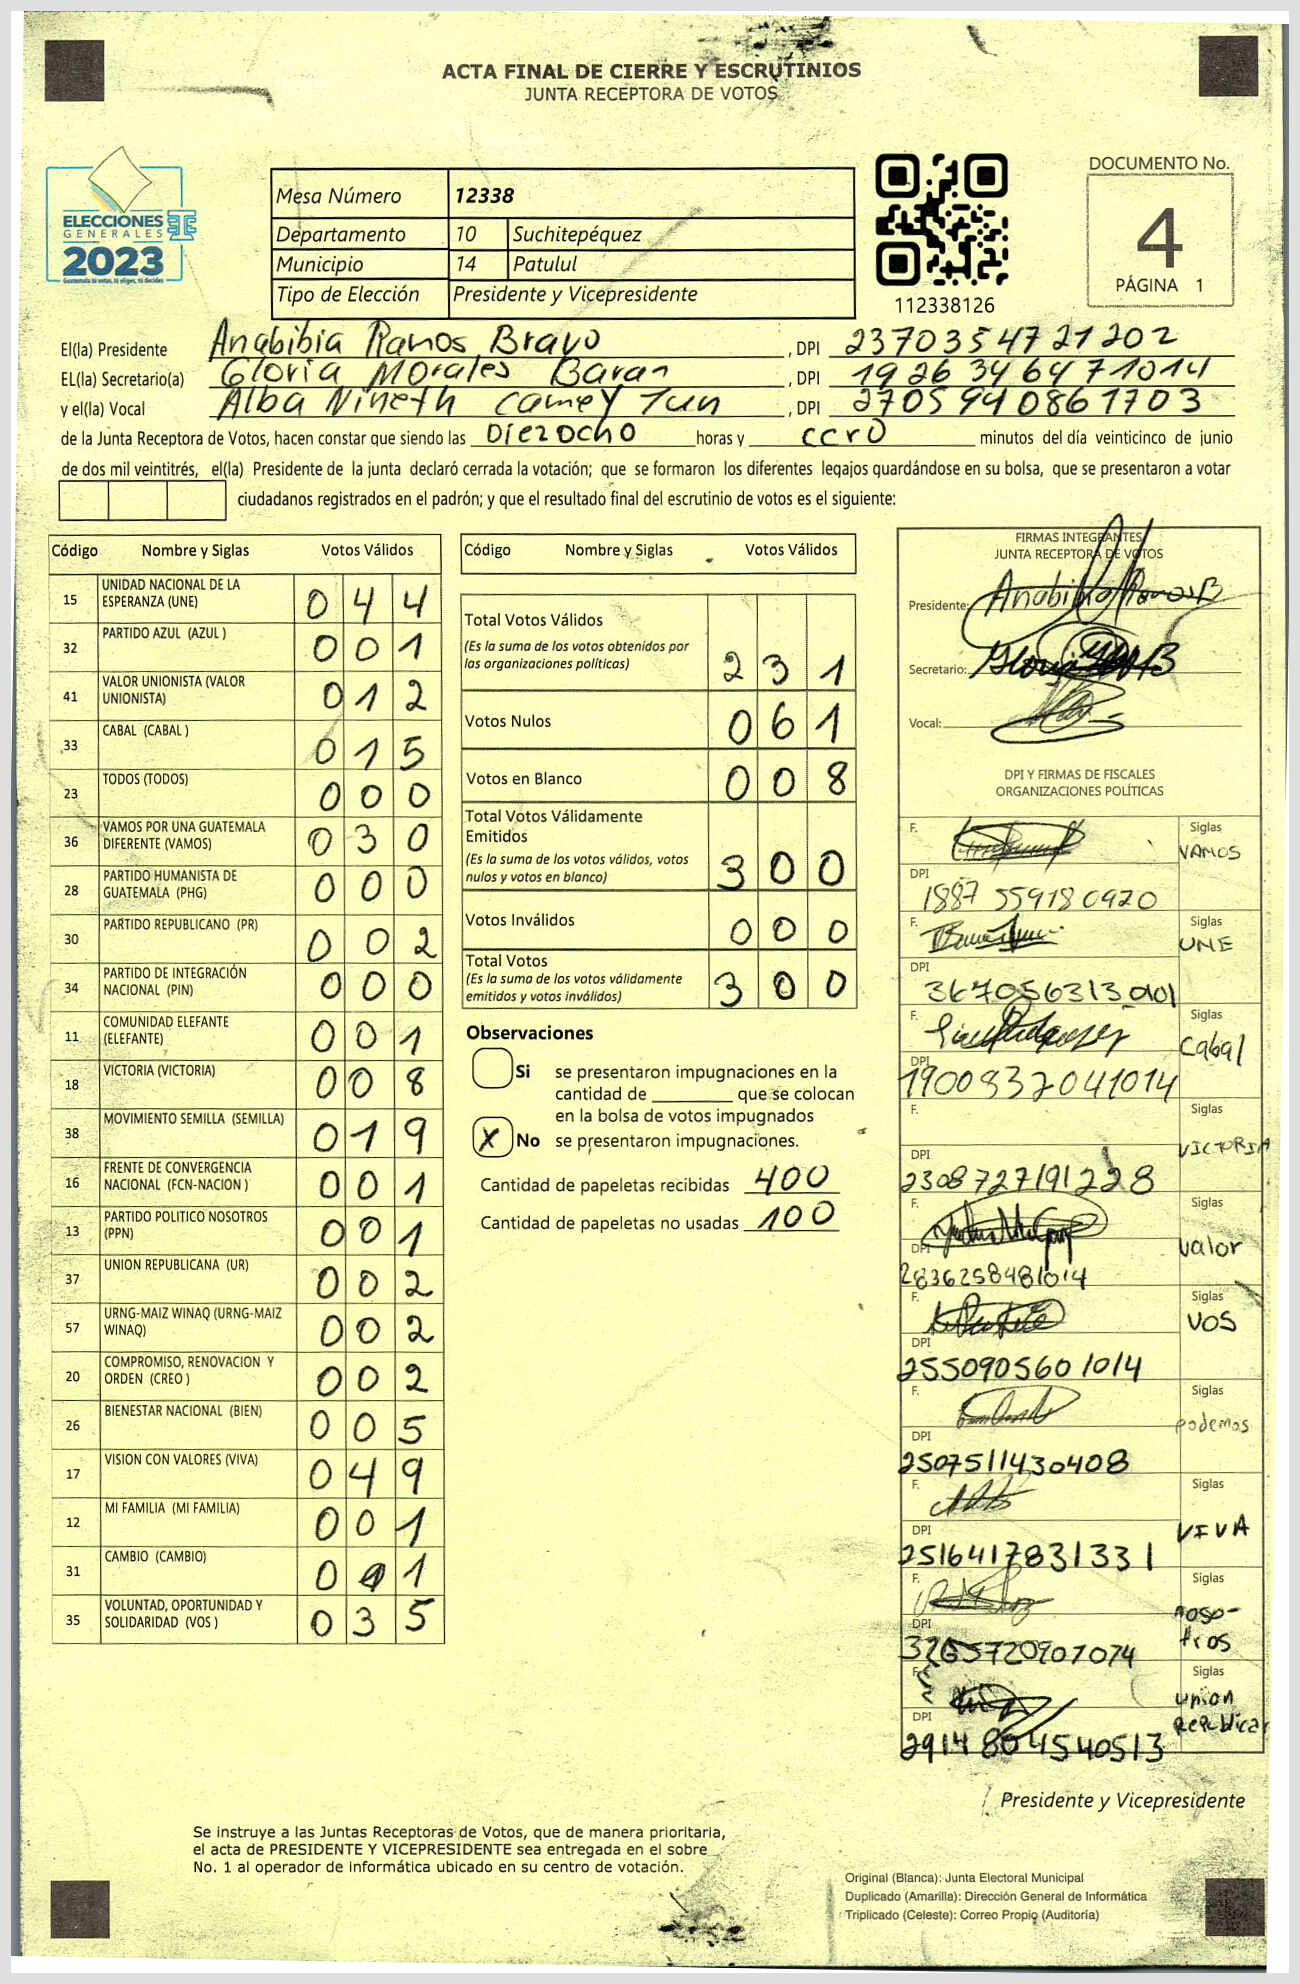 ACTA FINAL DE CIERRE Y ESCRUTINIOS
JUNTA RECEPTORA DE VOTOS
ELECCIONES
GENERALES
2023
Mesa Número 12338
Departamento 10 Suchitepéquez
Municipio 14 Patulul
Tipo de Elección Presidente y Vicepresidente
112338126
DOCUMENTO No.
4
PÁGINA 1
El(la) Presidente Anabibia Ramos Bravo, DPI 2370354721202
EL(la) Secretario(a) Gloria Morales Baran, DPI 1926346471014
y el(la) Vocal Alba Nineth Camey Tun, DPI 2705940861703
de la Junta Receptora de Votos, hacen constar que siendo las Diezocho horas y cero minutos del día veinticinco de junio
de dos mil veintitrés, el(la) Presidente de la junta declaró cerrada la votación; que se formaron los diferentes legajos guardándose en su bolsa, que se presentaron a votar
ciudadanos registrados en el padrón; y que el resultado final del escrutinio de votos es el siguiente:
Código Nombre y Siglas Votos Válidos
15 UNIDAD NACIONAL DE LA ESPERANZA (UNE) 044
32 PARTIDO AZUL (AZUL ) 001
41 VALOR UNIONISTA (VALOR UNIONISTA) 012
33 CABAL (CABAL ) 015
23 TODOS (TODOS) 000
36 VAMOS POR UNA GUATEMALA DIFERENTE (VAMOS) 030
28 PARTIDO HUMANISTA DE GUATEMALA (PHG) 000
30 PARTIDO REPUBLICANO (PR) 002
34 PARTIDO DE INTEGRACIÓN NACIONAL (PIN) 000
11 COMUNIDAD ELEFANTE (ELEFANTE) 001
18 VICTORIA (VICTORIA) 008
38 MOVIMIENTO SEMILLA (SEMILLA) 019
16 FRENTE DE CONVERGENCIA NACIONAL (FCN-NACION ) 001
13 PARTIDO POLITICO NOSOTROS (PPN) 001
37 UNION REPUBLICANA (UR) 002
57 URNG-MAIZ WINAQ (URNG-MAIZ WINAQ) 002
20 COMPROMISO, RENOVACION Y ORDEN (CREO ) 002
26 BIENESTAR NACIONAL (BIEN) 005
17 VISION CON VALORES (VIVA) 049
12 MI FAMILIA (MI FAMILIA) 001
31 CAMBIO (CAMBIO) 0 1
35 VOLUNTAD, OPORTUNIDAD Y SOLIDARIDAD (VOS ) 035
Código Nombre y Siglas Votos Válidos
Total Votos Válidos
(Es la suma de los votos obtenidos por
las organizaciones políticas) 231
Votos Nulos 061
Votos en Blanco 008
Total Votos Válidamente
Emitidos
(Es la suma de los votos válidos, votos
nulos y votos en blanco) 300
Votos Inválidos 000
Total Votos
(Es la suma de los votos válidamente
emitidos y votos inválidos) 300
Observaciones
Si se presentaron impugnaciones en la
cantidad de ________ que se colocan
en la bolsa de votos impugnados
X No se presentaron impugnaciones.
Cantidad de papeletas recibidas 400
Cantidad de papeletas no usadas 100
FIRMAS INTEGRANTES
JUNTA RECEPTORA DE VOTOS
Presidente: Anabibia Ramos B
Secretario: Gloria
Vocal:
DPI Y FIRMAS DE FISCALES
ORGANIZACIONES POLÍTICAS
F. Siglas VAMOS
DPI 1887 559180920
F. Siglas UNE
DPI 3670563130101
F. Siglas Cabal
DPI 1900837041014
F. Siglas VICTORIA
DPI 2308727191228
F. Siglas Valor
DPI 2836258481014
F. Siglas VOS
DPI 2550905601014
F. Siglas podemos
DPI 2507511430408
F. Siglas VIVA
DPI 2516417831331
F. Siglas noso-
tros
DPI
F. Siglas union
Republica
DPI 2914804540513
Presidente y Vicepresidente
Se instruye a las Juntas Receptoras de Votos, que de manera prioritaria,
el acta de PRESIDENTE Y VICEPRESIDENTE sea entregada en el sobre
No. 1 al operador de informática ubicado en su centro de votación.
Original (Blanca): Junta Electoral Municipal
Duplicado (Amarilla): Dirección General de Informática
Triplicado (Celeste): Correo Propio (Auditoría)